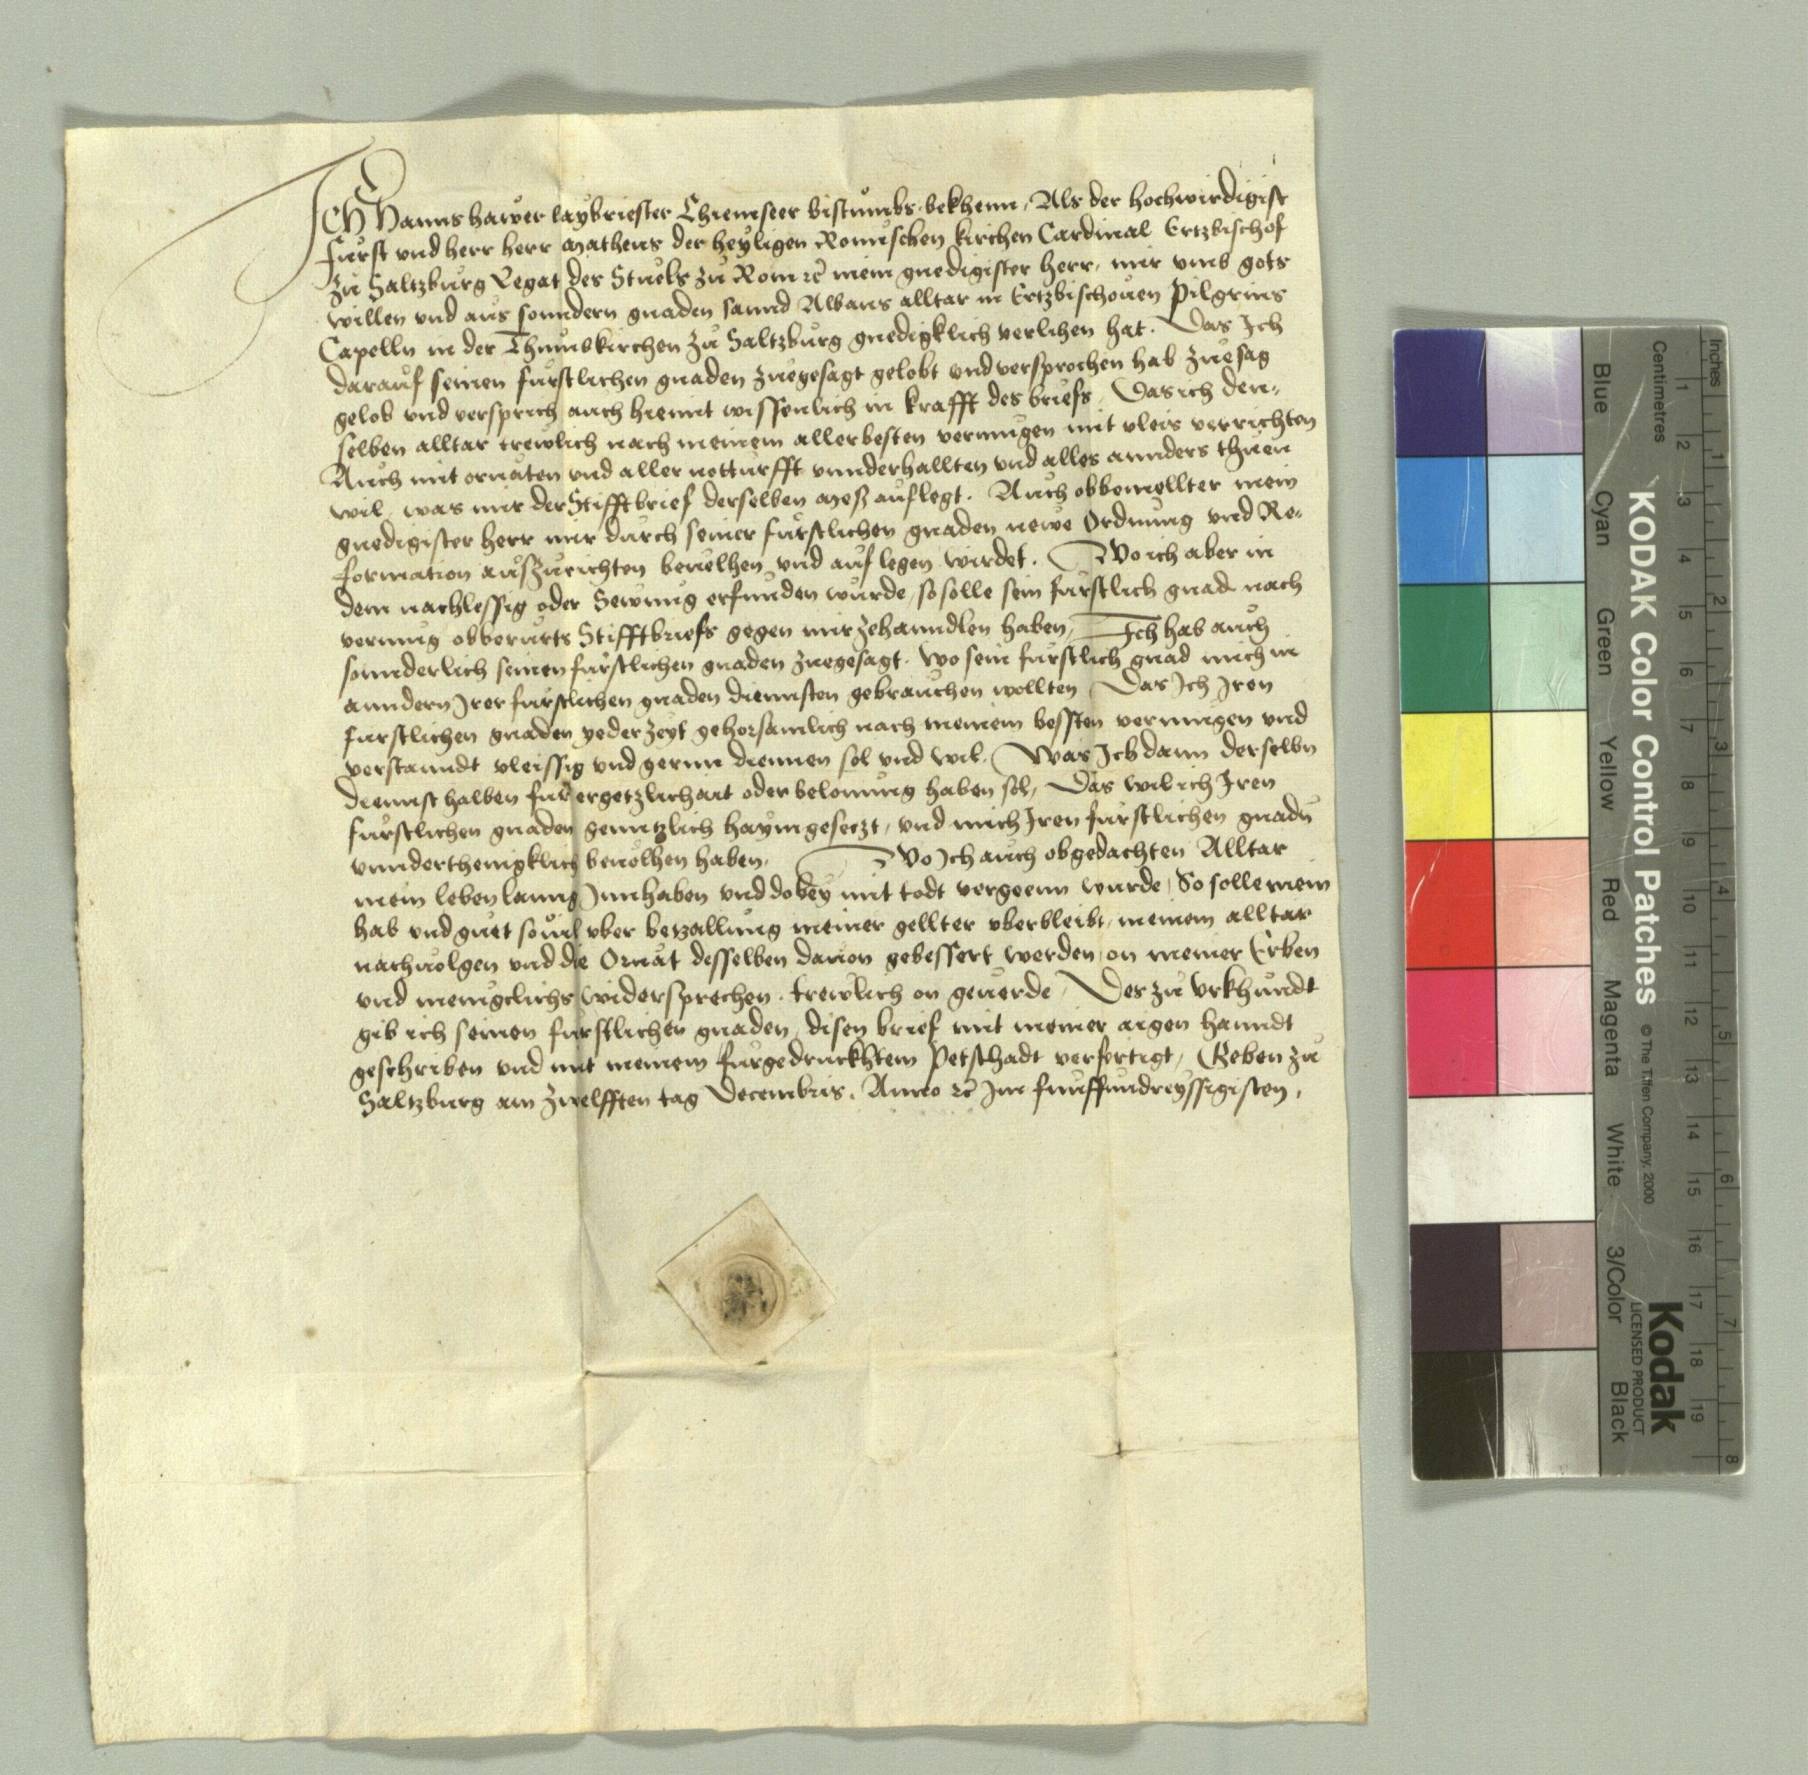 Ich Hanns hawer laybriester Chiemseer bistumbs bekhenn, Als der hochwirdigist
fürst vnd herr herr Matheus der heyligen Romischen kirchen Cardinal Ertzbischof
zu Saltzburg Legat des Stuels zu Rom rc mein gnedigister herr, mir vmb gots
willen vnd aus sonndern gnaden sannd Albans alltar in Ertzbischouen Pilgrins
Capelln in der Thumbkirchen zu Saltzburg gnedigklich verlihen hat. Das Ich
darauf seinen fürstlichen gnaden zuegesagt gelobt vnd versprochen hab zuesag
gelob vnd versprich auch hiemit wissenlich in krafft des briefs, Das ich den-
selben alltar trewlich nach meinem allerbesten vermugen mit vleis verrichten
Auch mit ornaten vnd aller notturfft vnnderhallten vnd alles annders thuen
wil, was mir der Stifftbrief derselben Meß auflegt. Auch obbemellter mein
gnedigister herr mir durch seiner fürstlichen gnaden newe Ordnung vnd Re-
formation auszurichten beuelhen vnd auflegen wirdet. Wo ich aber in
dem nachlessig oder Sewmig erfunden wurde, so solle sein fürstlich gnad nach
vermug obberurts Stifftbriefs gegen mir ze hanndlen haben, Ich hab auch
sonnderlich seinen fürstlichen gnaden zuegesagt. wo sein fürstlich gnad mich in
anndern Irer fürstlichen gnaden diennsten gebrauchen wollten, Das Ich Iren
fürstlichen gnaden yeder zeyt gehorsamlich nach meinem bessten vermugen vnd
verstanndt vleissig vnd gernn diennen sol vnd wil. Was Ich dann derselbn
diennst halben für ergetzlichait oder belonung haben sol, Das wil ich Iren
fürstlichen gnaden genntzlich haymgesetzt, vnd mich Iren fürstlichen gnadn
vnnderthenigklich beuolhen haben. Wo Ich auch obgedachten Alltar
mein leben lanng Innhaben vnd dobey mit todt vergeenn wurde, So solle mein
hab vnd guet souil vber betzallung meiner gellter vberbleibt, meinem alltar
nachuolgen vnd die Ornät desselben dauon gebessert werden, on meiner Erben
vnd menigclichs widersprechen. trewlich on geuerde, Des zu Vrkhundt
gib ich seinen fürstlichen gnaden, disen brief mit meiner aigen hanndt
geschriben vnd mit meinem fürgedruckhtem Petschadt verfertigt, Geben zu
Saltzburg am zwelfften tag Decembris. Anno rc Im funffunndreyssigisten,
Inches
Centimetres
1 2 3 4 5 6 7 8
1 2 3 4 5 6 7 8 9 10 11 12 13 14 15 16 17 18 19
KODAK Color Control Patches
© The Tiffen Company, 2000
Kodak
LICENSED PRODUCT
Blue Cyan Green Yellow Red Magenta White 3/Color Black